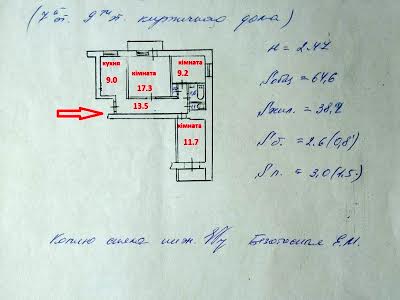 (7й эт. 9ти эт. кирпичного дома)
h = 2.47
кухно
9.0
кімната
17.3
кімната
9.2
13.5
кімната
11.7
Sобщ = 64,6
Sжил. = 38,2
Sб. = 2.6 (0,8)
Sп. = 3,0 (1.5.)
Копию сняла инж. Безотосная Е.М.